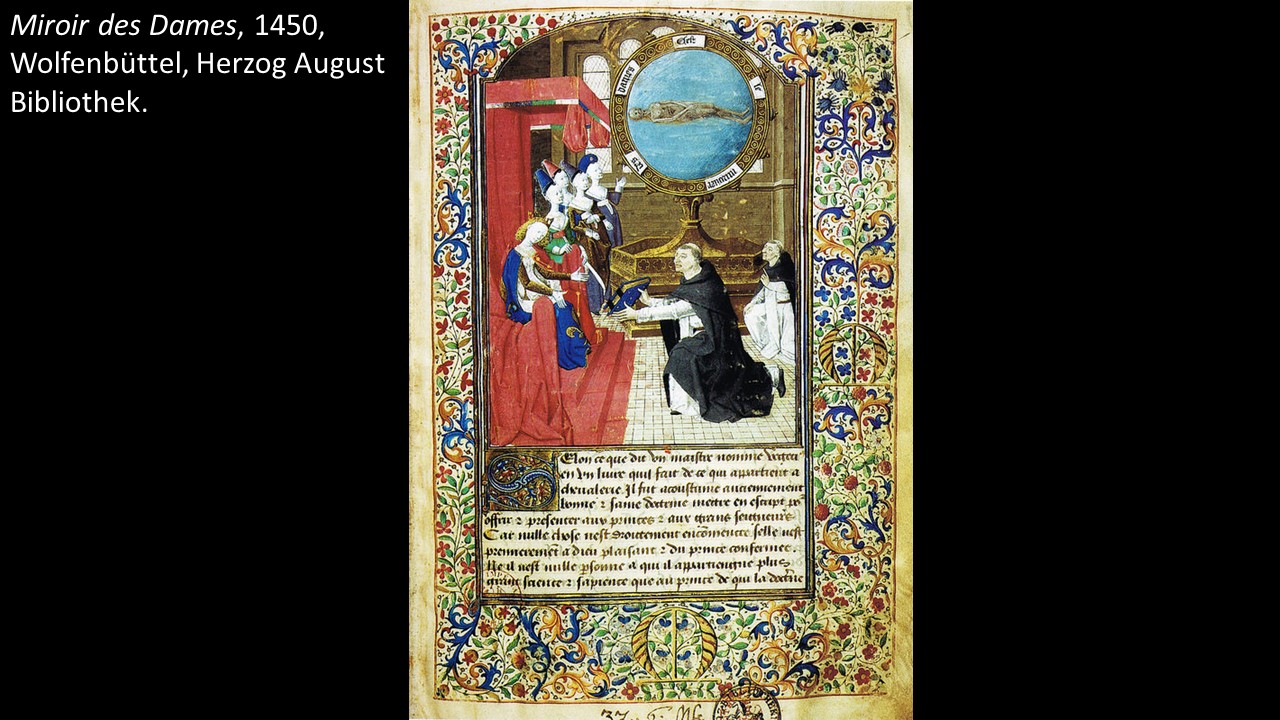 Miroir des Dames, 1450,
Wolfenbüttel, Herzog August
Bibliothek.
C'est
le
miroer
des
dames
Selon ce que dit vn maistre nomme vegece
en vn liure quil fait de ce qui appartient a
cheualerie. Il fut acoustume anciennement
bonne ⁊ saine doctrine mettre en escript po
offrir ⁊ presenter aux princes ⁊ aux grans seigneurs
Car nulle chose nest droictement encomencee selle nest
premierement a dieu plaisant ⁊ du prince confermee.
Ne il nest nulle psonne a qui il appartiengne plus
grant science ⁊ sapience que au prince de qui la doctrine